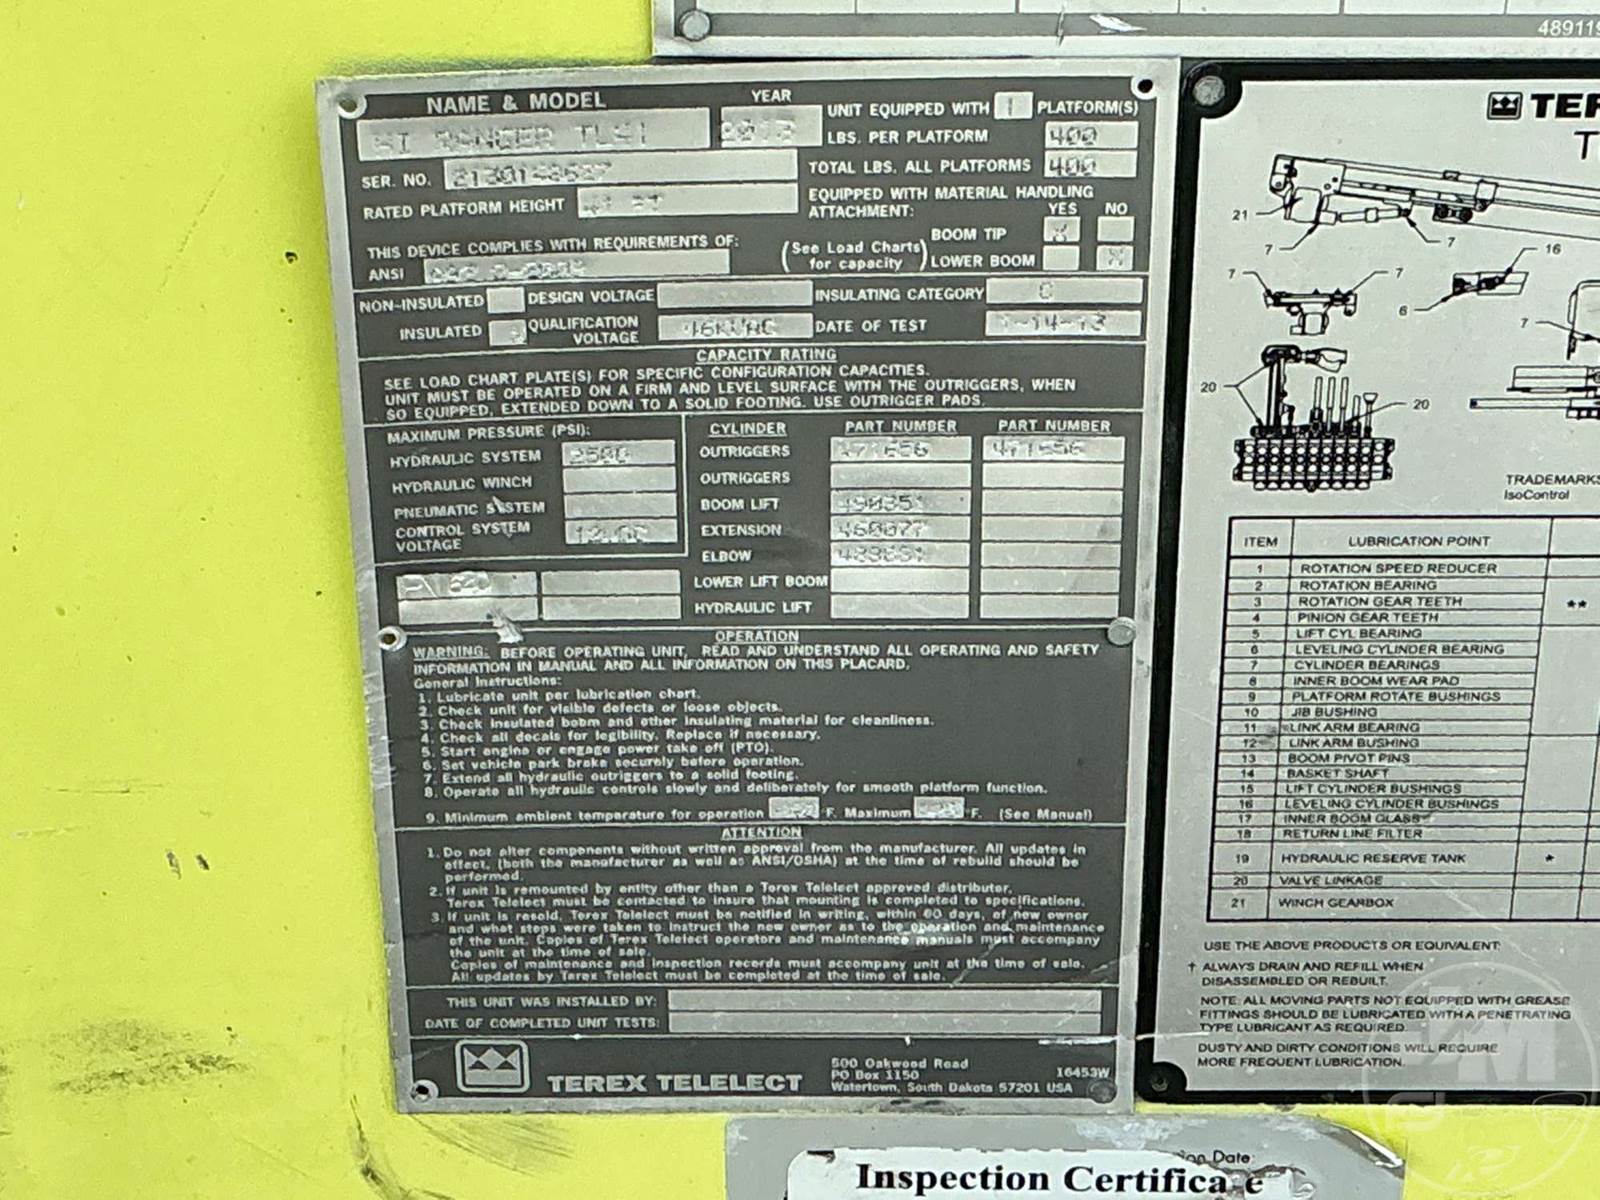 489119
NAME & MODEL
YEAR
HI RANGER TL41
2013
UNIT EQUIPPED WITH 1 PLATFORM(S)
LBS. PER PLATFORM 400
TOTAL LBS. ALL PLATFORMS 400
SER. NO.
RATED PLATFORM HEIGHT 41 FT
EQUIPPED WITH MATERIAL HANDLING
ATTACHMENT: YES NO
BOOM TIP X
(See Load Charts for capacity)
LOWER BOOM X
THIS DEVICE COMPLIES WITH REQUIREMENTS OF:
ANSI
NON-INSULATED
DESIGN VOLTAGE
INSULATING CATEGORY C
INSULATED
QUALIFICATION VOLTAGE 46KVAC
DATE OF TEST 1-14-13
CAPACITY RATING
SEE LOAD CHART PLATE(S) FOR SPECIFIC CONFIGURATION CAPACITIES.
UNIT MUST BE OPERATED ON A FIRM AND LEVEL SURFACE WITH THE OUTRIGGERS, WHEN
SO EQUIPPED, EXTENDED DOWN TO A SOLID FOOTING. USE OUTRIGGER PADS.
MAXIMUM PRESSURE (PSI):
HYDRAULIC SYSTEM 2500
HYDRAULIC WINCH
PNEUMATIC SYSTEM
CONTROL SYSTEM VOLTAGE 12VDC
CYLINDER PART NUMBER PART NUMBER
OUTRIGGERS 471656 471656
OUTRIGGERS
BOOM LIFT 490351
EXTENSION 460077
ELBOW
LOWER LIFT BOOM
HYDRAULIC LIFT
OPERATION
WARNING: BEFORE OPERATING UNIT, READ AND UNDERSTAND ALL OPERATING AND SAFETY
INFORMATION IN MANUAL AND ALL INFORMATION ON THIS PLACARD.
General Instructions:
1. Lubricate unit per lubrication chart.
2. Check unit for visible defects or loose objects.
3. Check insulated boom and other insulating material for cleanliness.
4. Check all decals for legibility. Replace if necessary.
5. Start engine or engage power take off (PTO).
6. Set vehicle park brake securely before operation.
7. Extend all hydraulic outriggers to a solid footing.
8. Operate all hydraulic controls slowly and deliberately for smooth platform function.
9. Minimum ambient temperature for operation °F. Maximum °F. (See Manual)
ATTENTION
1. Do not alter components without written approval from the manufacturer. All updates in
effect, (both the manufacturer as well as ANSI/OSHA) at the time of rebuild should be
performed.
2. If unit is remounted by entity other than a Terex Telelect approved distributor,
Terex Telelect must be contacted to insure that mounting is completed to specifications.
3. If unit is resold, Terex Telelect must be notified in writing, within 60 days, of new owner
and what steps were taken to instruct the new owner as to the operation and maintenance
of the unit. Copies of Terex Telelect operators and maintenance manuals must accompany
the unit at the time of sale.
Copies of maintenance and inspection records must accompany unit at the time of sale.
All updates by Terex Telelect must be completed at the time of sale.
THIS UNIT WAS INSTALLED BY:
DATE OF COMPLETED UNIT TESTS:
TEREX TELELECT
500 Oakwood Road
PO Box 1150
Watertown, South Dakota 57201 USA
16453W
21
7
7
16
7
7
6
7
20
20
TRADEMARKS
IsoControl
ITEM LUBRICATION POINT
1 ROTATION SPEED REDUCER
2 ROTATION BEARING
3 ROTATION GEAR TEETH **
4 PINION GEAR TEETH
5 LIFT CYL BEARING
6 LEVELING CYLINDER BEARING
7 CYLINDER BEARINGS
8 INNER BOOM WEAR PAD
9 PLATFORM ROTATE BUSHINGS
10 JIB BUSHING
11 LINK ARM BEARING
12 LINK ARM BUSHING
13 BOOM PIVOT PINS
14 BASKET SHAFT
15 LIFT CYLINDER BUSHINGS
16 LEVELING CYLINDER BUSHINGS
17 INNER BOOM GLASS
18 RETURN LINE FILTER
19 HYDRAULIC RESERVE TANK *
20 VALVE LINKAGE
21 WINCH GEARBOX
USE THE ABOVE PRODUCTS OR EQUIVALENT:
† ALWAYS DRAIN AND REFILL WHEN
DISASSEMBLED OR REBUILT.
NOTE: ALL MOVING PARTS NOT EQUIPPED WITH GREASE
FITTINGS SHOULD BE LUBRICATED WITH A PENETRATING
TYPE LUBRICANT AS REQUIRED.
DUSTY AND DIRTY CONDITIONS WILL REQUIRE
MORE FREQUENT LUBRICATION.
Date:
Inspection Certificate